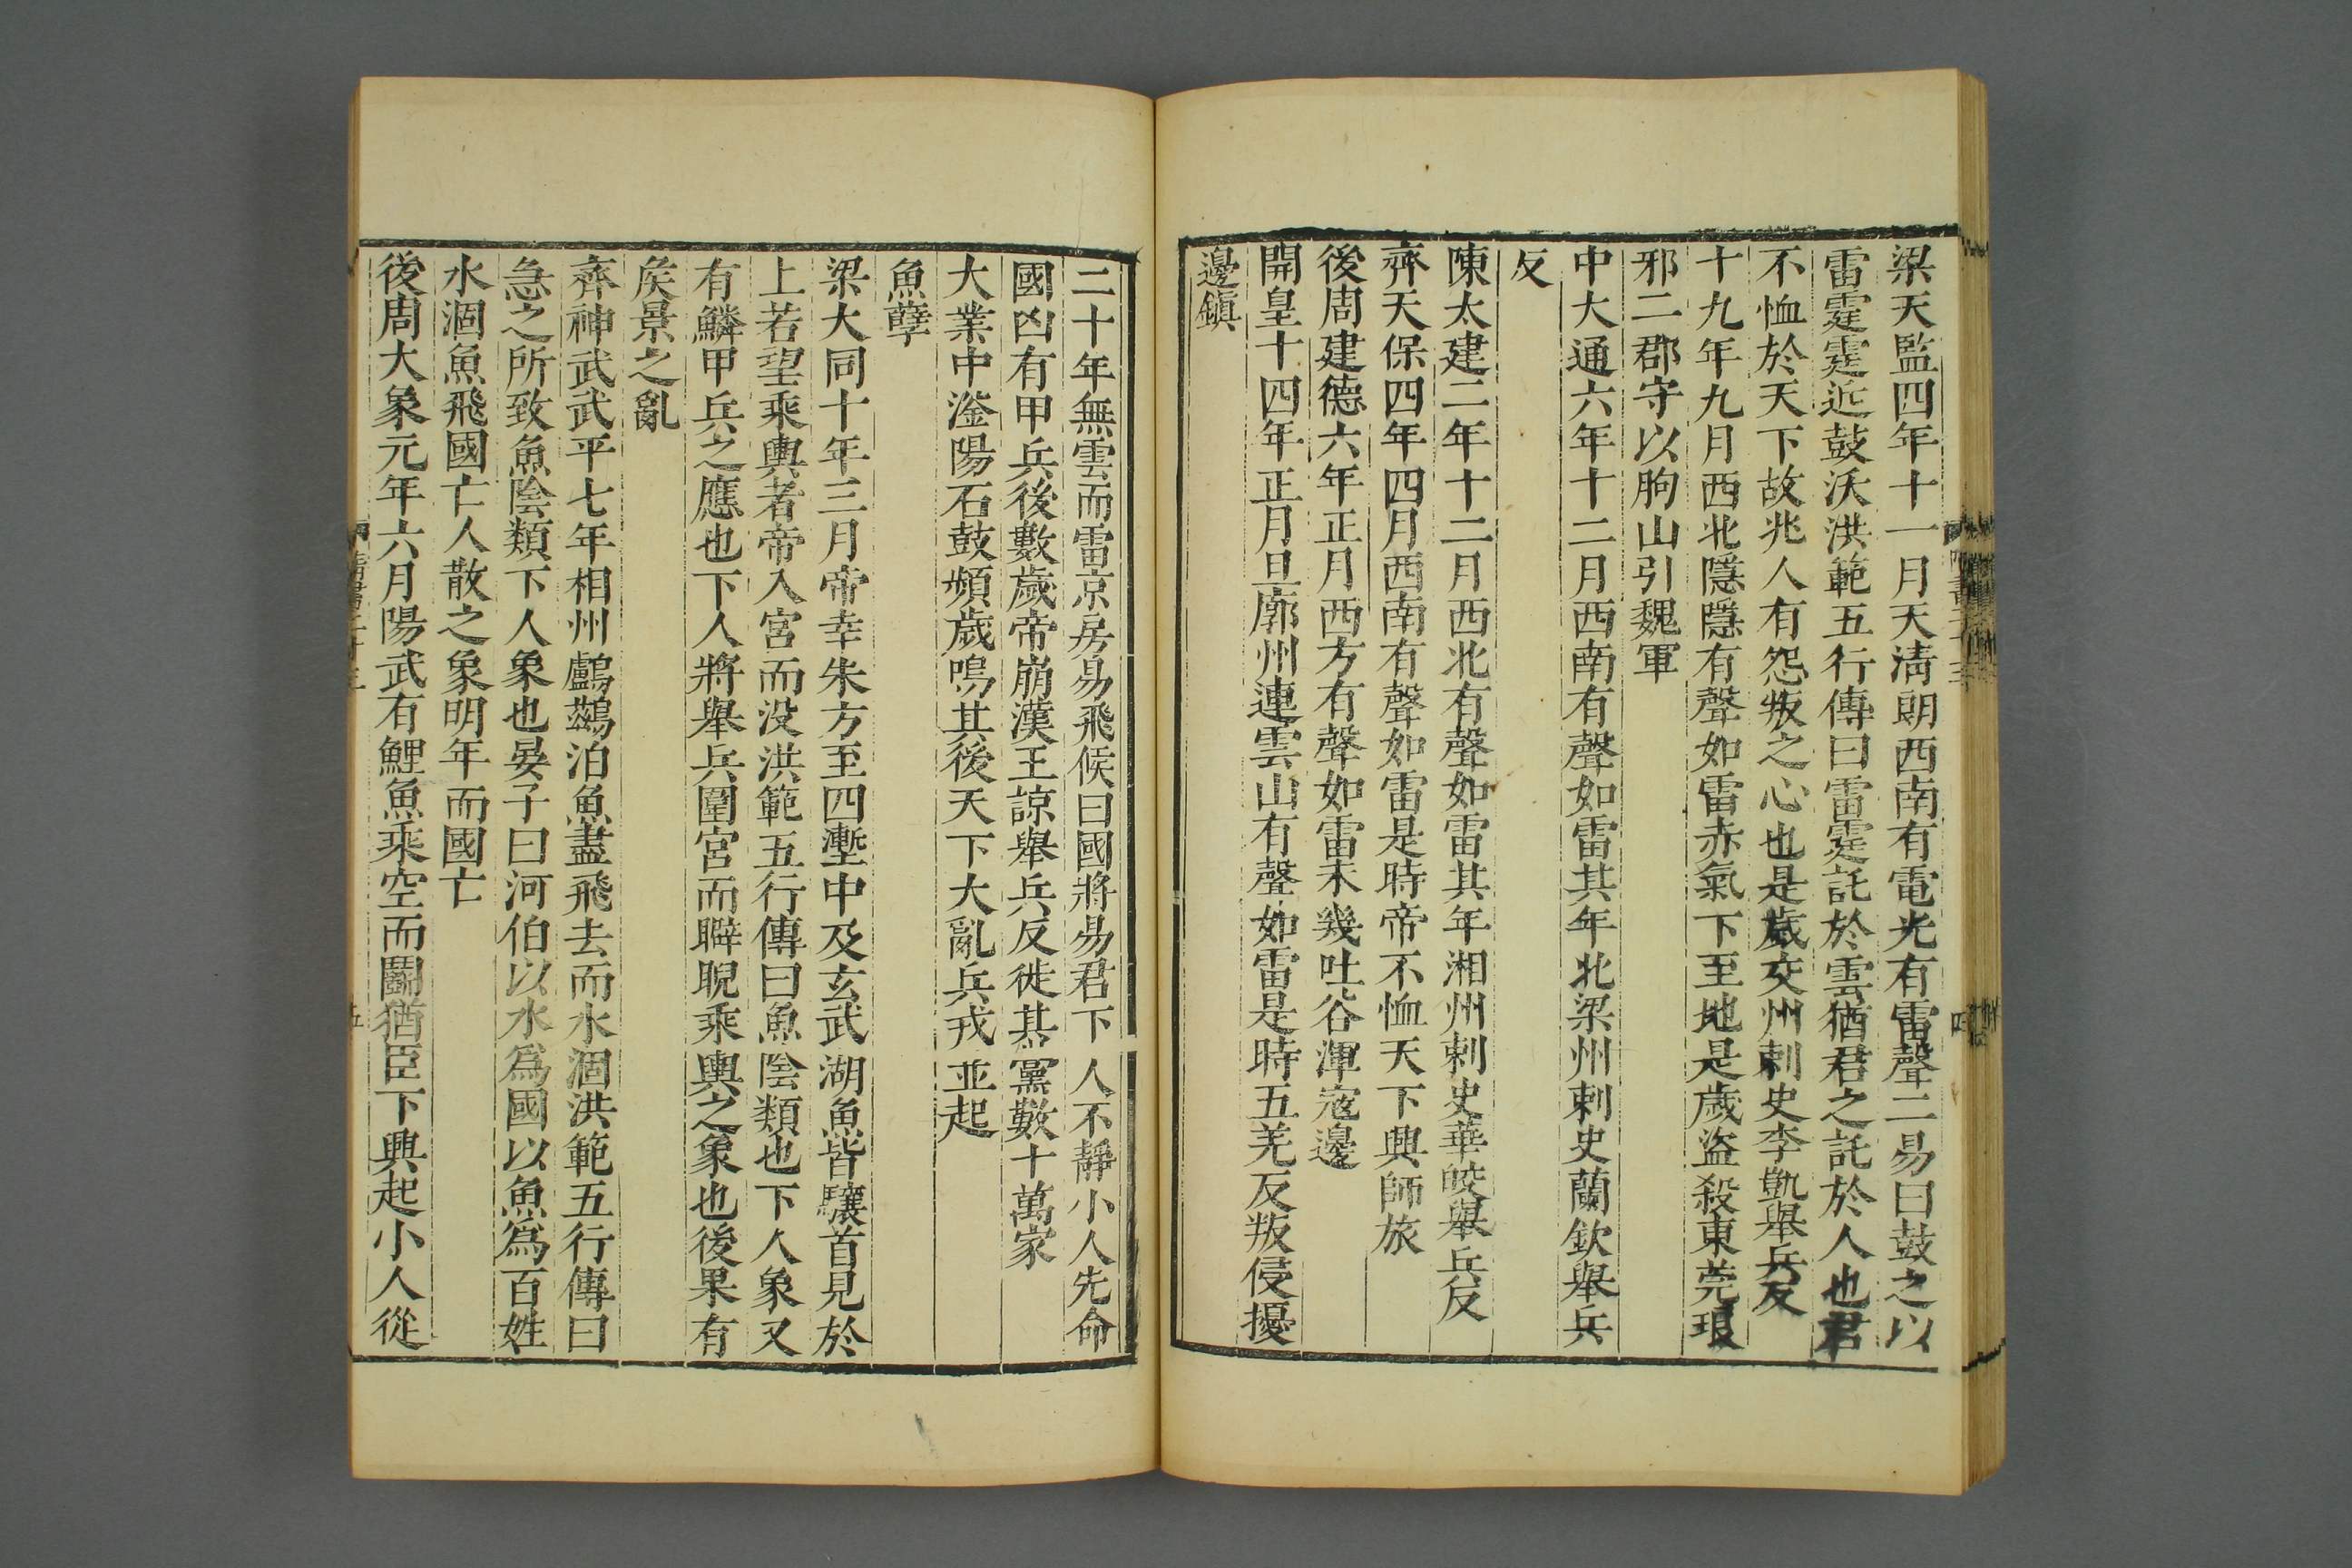 梁天監四年十一月天清朗西南有電光有雷聲二易曰鼓之以
雷霆霆近鼓沃洪範五行傳曰雷霆託於雲猶君之託於人也君
不恤於天下故兆人有怨叛之心也是歲交州刺史李凱舉兵反
十九年九月西北隱隱有聲如雷赤氣下至地是歲盜殺東莞琅
邪二郡守以朐山引魏軍
中大通六年十二月西南有聲如雷其年北梁州刺史蘭欽舉兵
反
陳太建二年十二月西北有聲如雷其年湘州刺史華皎舉兵反
齊天保四年四月西南有聲如雷是時帝不恤天下興師旅
後周建德六年正月西方有聲如雷未幾吐谷渾寇邊
開皇十四年正月旦廓州連雲山有聲如雷是時五羌反叛侵擾
邊鎮
二十年無雲而雷京房易飛候曰國將易君下人不靜小人先命
國凶有甲兵後數歲帝崩漢王諒舉兵反徙其黨數十萬家
大業中滏陽石鼓頻歲鳴其後天下大亂兵戎並起
魚孽
梁大同十年三月帝幸朱方至四塹中及玄武湖魚皆驤首見於
上若望乘輿者帝入宮而没洪範五行傳曰魚陰類也下人象又
有鱗甲兵之應也下人將舉兵圍宮而睥睨乘輿之象也後果有
矦景之亂
齊神武武平七年相州鸕鷀泊魚盡飛去而水涸洪範五行傳曰
急之所致魚陰類下人象也晏子曰河伯以水為國以魚為百姓
水涸魚飛國亡人散之象明年而國亡
後周大象元年六月陽武有鯉魚乘空而鬭猶臣下興起小人從